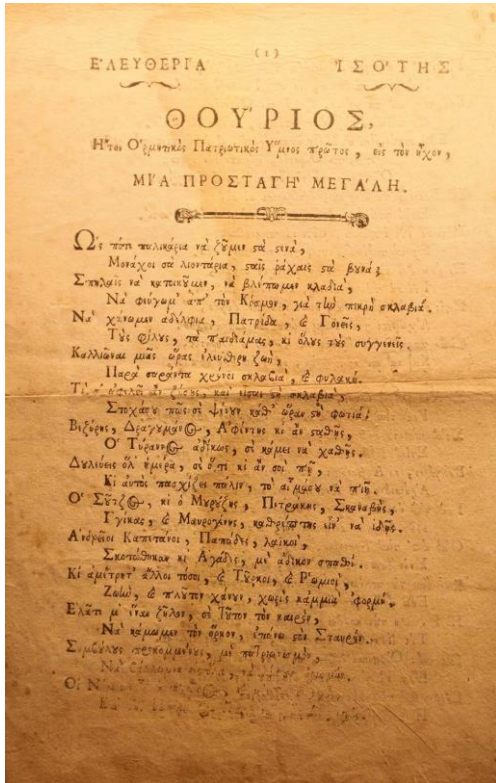 (1)
Ε'ΛΕΥΘΕΡΙΑ ἸΣΟ'ΤΗΣ
ΘΟΥ'ΡΙΟΣ,
Ἤτοι Ὁρμητικὸς Πατριωτικὸς Ὕμνος πρῶτος, εἰς τὸν ἦχον,
ΜΙ'Α ΠΡΟΣΤΑΓΗ' ΜΕΓΑ'ΛΗ.
Ὣς πότε παλικάρια νὰ ζοῦμεν στὰ στενὰ,
Μονάχοι σὰ λιοντάρια, σταῖς ῥάχαις στὰ βουνά;
Σπηλαὶς νὰ κατοικοῦμεν, νὰ βλέπωμεν κλαδιὰ,
Νὰ φεύγωμ' ἀπ' τὸν Κόσμον, γιὰ τὴν πικρὴ σκλαβιά.
Νὰ χάνωμεν ἀδέλφια, Πατρίδα, καὶ Γονεῖς,
Τοὺς φίλους, τὰ παιδιάμας, κι ὅλους τοὺς συγγενεῖς.
Καλλιῶναι μιᾶς ὥρας ἐλεύθερη ζωὴ,
Παρὰ σαράντα χρόνοι σκλαβιὰ, καὶ φυλακή.
Τί σ' ὠφελεῖ ἂν ζήσῃς, καὶ εἶσαι στὴ σκλαβιὰ,
Στοχάσου πῶς σὲ ψένουν καθ' ὥραν στὴ φωτιά;
Βεζύρης, Δραγουμᾶνος, Ἀφέντης κι ἂν σταθῇς,
Ὁ Τύραννος ἀδίκως, σὲ κάμει νὰ χαθῇς.
Δουλεύεις ὅλ' ἡμέρα, σὲ ὅ,τι κι ἂν σοὶ πῇ,
Κι αὐτὸς πασχίζει πάλιν, τὸ αἷμάσου νὰ πιῇ.
Ὁ Σοῦτζος, κι ὁ Μουρούζης, Πετράκης, Σκαναβῆς,
Γγίκας, καὶ Μαυρογένης, καθρέπτης εἶν' νὰ ἰδῇς.
Ἀνδρεῖοι Καπετάνοι, Παπάδες, λαϊκοὶ,
Σκοτώθηκαν κι Ἀγάδες, μὲ ἄδικον σπαθί.
Κι ἀμέτρητ' ἄλλοι τόσοι, καὶ Τοῦρκοι, καὶ Ῥωμιοὶ,
Ζωὴν, καὶ πλοῦτον χάνουν, χωρὶς κάμμιὰ 'φορμή.
Ἐλᾶτε μ' ἕναν ζῆλον, σὲ τοῦτον τὸν καιρὸν,
Νὰ κάμωμεν τὸν ὅρκον, ἐπάνω στὸν Σταυρόν.
Συμβούλους προκομμένους, μὲ πατριωτισμὸν,